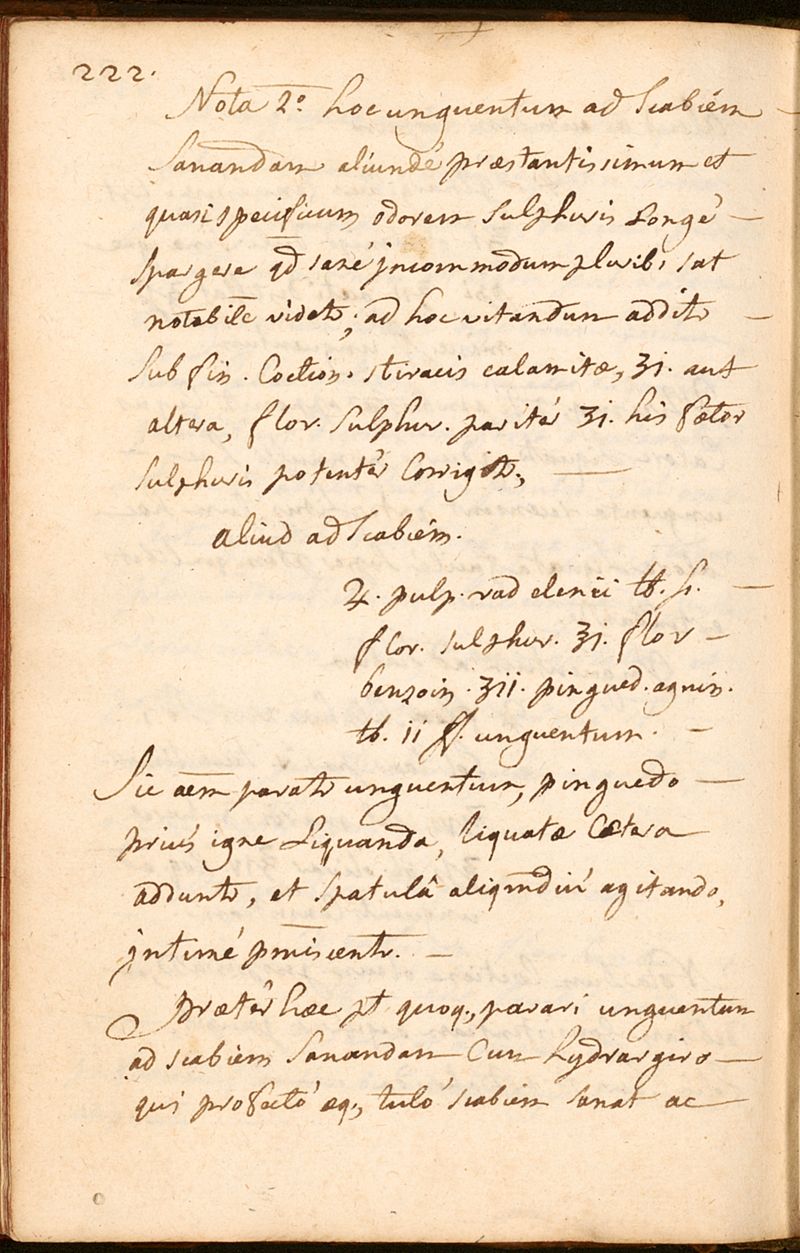 222.
Nota 2º hoc unguentum ad scabiém
sanandam aliundé præstantissimum et
quasi specificum odorem sulphuris Longé –
spargere qd̄ sané jncommodum plurib, sat
notabile videtr; ad hoc vitandum additr –
sub fin. Coction. stiracis calamitæ, ʒi. aut
altera, flor. sulphur. paritér ʒi. his fœtor
sulphuris potentér Corrigitr, —
aliud ad scabiém.
♃. pulp. rad elenii ℔. ß. –
flor. sulphur. ʒi. flor –
benzoin. ʒii. pingued. agnin.
℔. ii ff. unguentum. –
Sic aēm paratr unguentum, pinguedo –
priús igne Liquanda, liquatæ Cætera
adduntr, et spatulâ aliqm̄diú agitando,
jntimé pm̄iscentr. –
Prætér hæc pt quoq, parari unguentum
ad scabiém sanandam Cum hydrargiro –
qui profectó æq, tutó scabiém sanat ac –